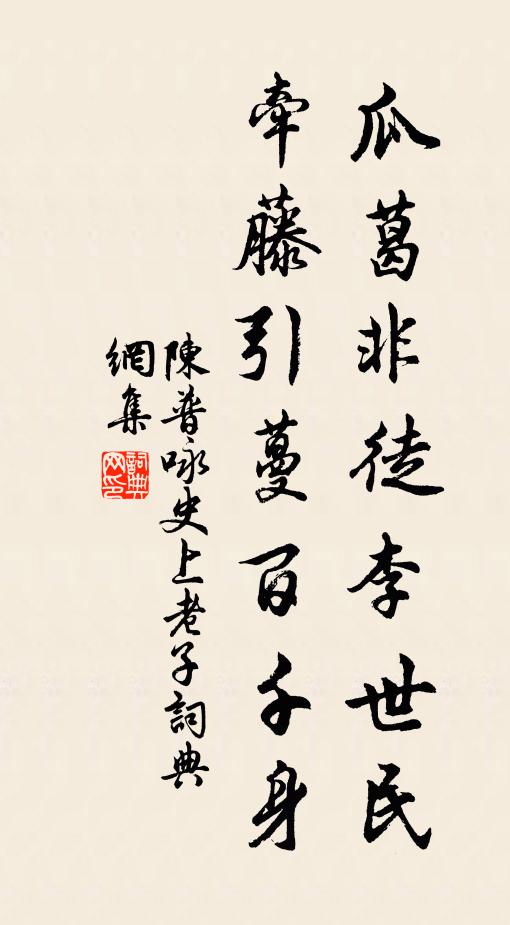 瓜葛非徒李世民
牽藤引蔓百千身
陳普咏史上老子詞典
網集
詞典
网印